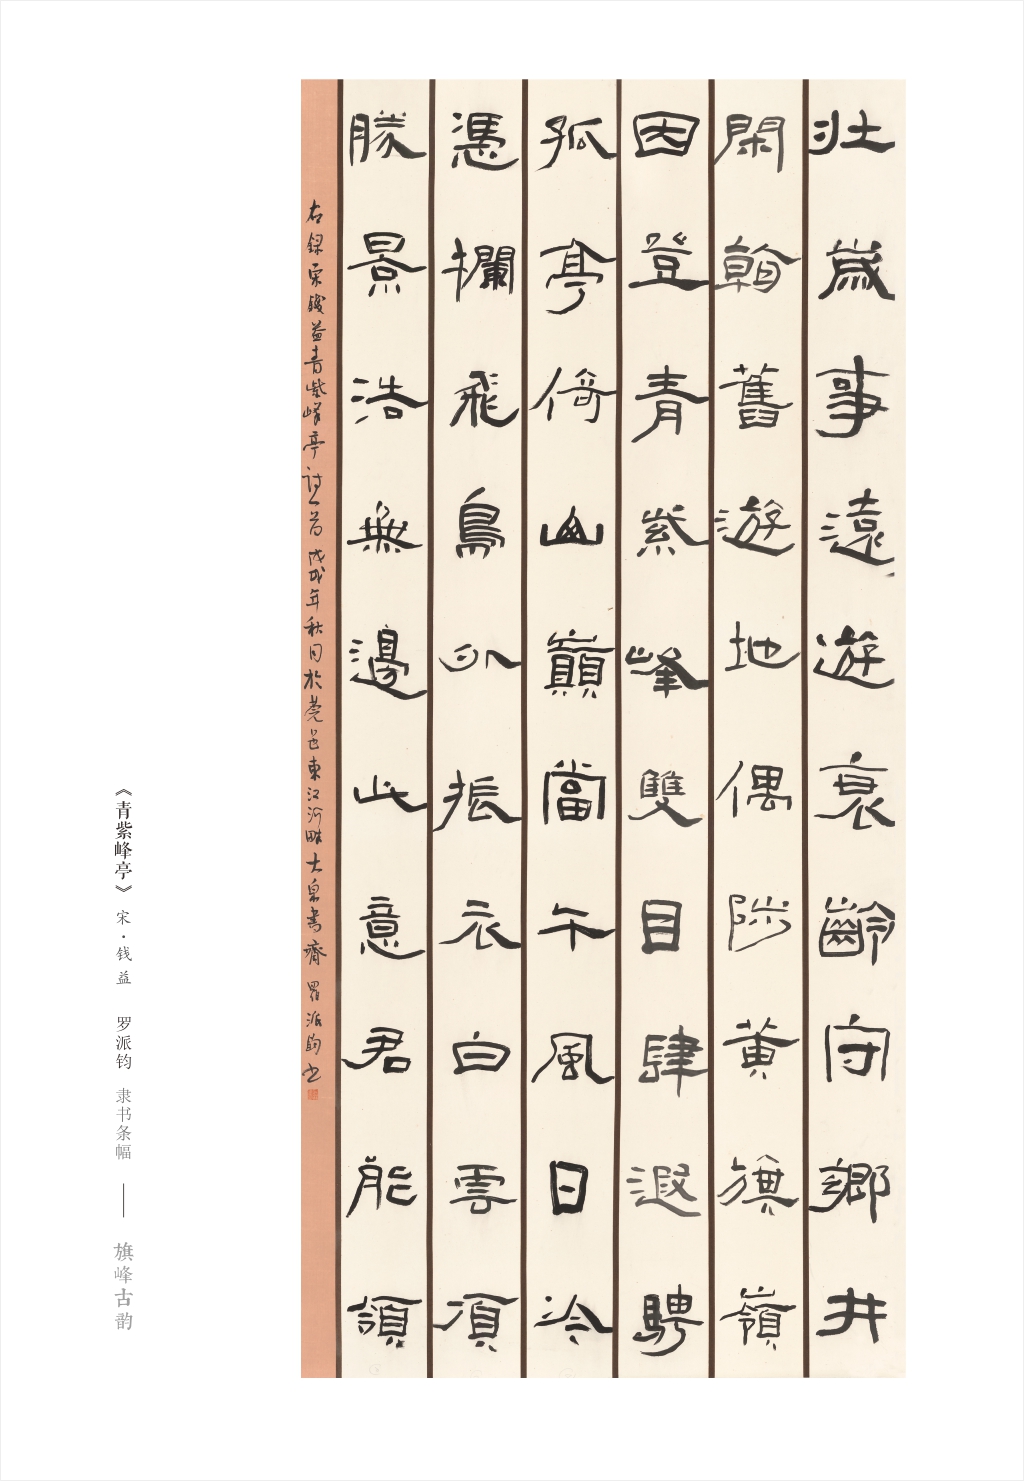 壮歲事遠遊衰齡守鄉井
閑尋舊遊地偶陟黃旗嶺
因登青紫峰雙目肆遐騁
孤亭倚山巔當午風日冷
憑欄飛鳥外振衣白雲頂
勝景浩無邊此意君能領
右録宋錢益青紫峰亭詩一首 戊戌年秋月於莞邑東江河畔大泉書齋 羅派鈞書
《青紫峰亭》 宋·钱益 罗派钧 隶书条幅 —— 旗峰古韵